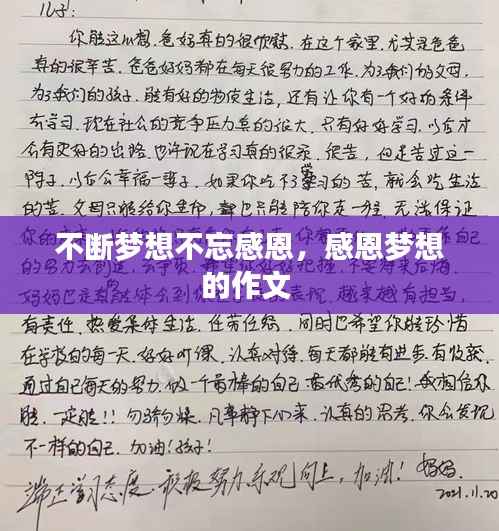 儿子:
你能这么想,爸妈真的很欣慰,在这个家里,尤其是爸爸
真的很辛苦,爸爸妈妈都在每天很努力的工作,为了我们的父母,
为了我们的孩子,能有好的物质生活,还有让你有一个好的条件
去学习,现在社会的竞争压力真的很大,只有好好学习,以后才
会有更好的出路,也许现在学习真的很累,很苦,但是苦过这一
阵子,以后会幸福一辈子,如果你吃不了学习的苦,就会吃生活
的苦,父母只能给你
陪你走一段,无法保证
不断梦想不忘感恩,感恩梦想
的作文
有责任,热爱集体生活,任劳任怨,同时也希望你能珍惜
在学校的每一天,好好听课,认真对待,每天都能有进步,有收获,
通过自己每天的努力,做一个最棒的自己!最优秀的自己!我相信你
能,一定能!!勿骄勿燥,凡事静下心来,认真的思考,你会发现
不一样的自己,加油!孩子!
端正学习态度,积极努力,乐观向上,加油!妈妈
2021.11.20